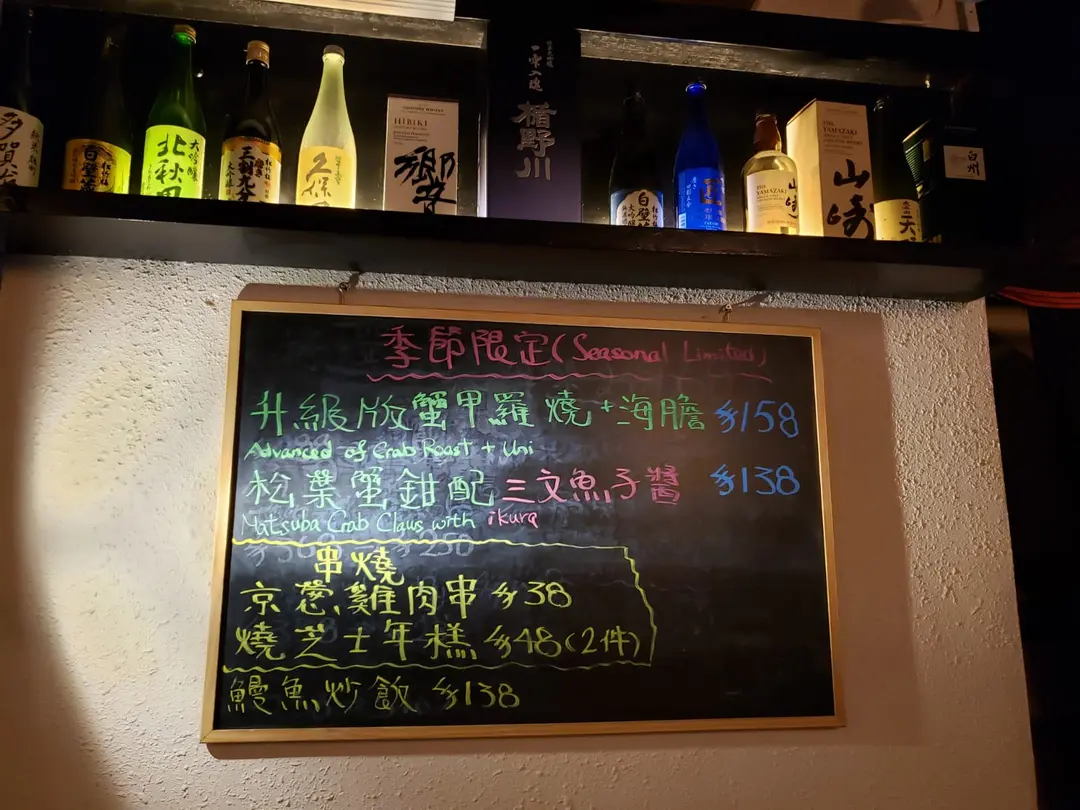 大吟醸
北秋田
三割九分
久保田
HIBIKI
響
一雫入魂
楯野川
白壁蔵
THE YAMAZAKI
山崎
THE YAMAZAKI
山崎
白州
季節限定(Seasonal Limited)
升級版蟹甲羅燒+海膽 $158
Advanced of Crab Roast + Uni
松葉蟹鉗配三文魚子醬 $138
Matsuba Crab Claws with ikura
串燒
京葱雞肉串 $38
燒芝士年糕 $48(2件)
鰻魚炒飯 $138